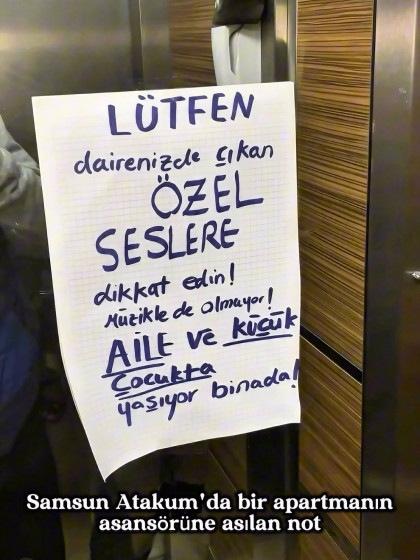 LÜTFEN
dairenizde çıkan
ÖZEL
SESLERE
dikkat edin!
Müzikle de olmuyor!
AİLE ve küçük
Çocukta
yaşıyor binada!
Samsun Atakum'da bir apartmanın
asansörüne asılan not